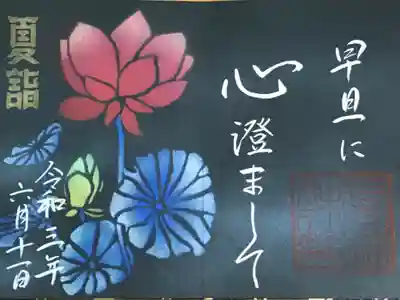 早旦に
心澄まして
夏詣
令和三年
六月十一日